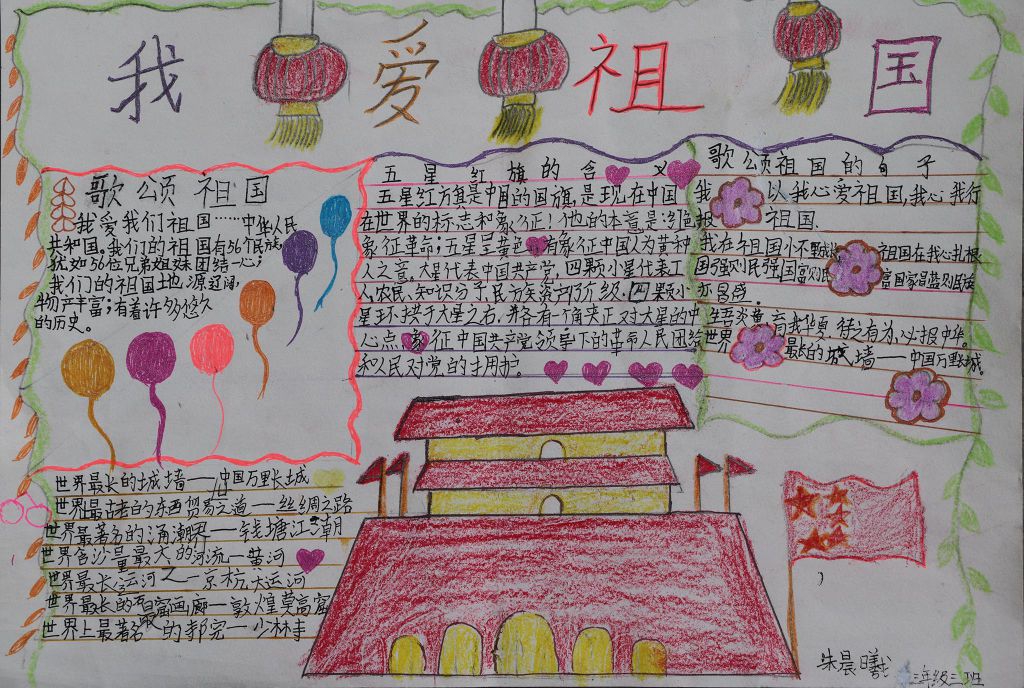 我爱祖国
歌颂祖国
我爱我们祖国……中华人民
共和国。我们的祖国有56个民族,
犹如56位兄弟姐妹团结一心;
我们的祖国土地辽阔,
物产丰富;有着许多悠久
的历史。
五星红旗的含义
五星红方旗是中国的国旗,是现在中国
在世界的标志和象征!他的本意是:红色
象征革命;五星呈黄色,有象征中国人为黄种
人之意。大星代表中国共产党,四颗小星代表工
人,农民,知识分子,民方矢资产阶级,四颗小
星环拱于大星之右,并各有一个角尖正对大星的中
心点,象征中国共产党领导下的革命人民团结
和人民对党的拥护。
歌颂祖国的句子
我 以我心爱祖国,我心我行
报 祖国.
我在祖国 祖国在我心扎根
国强则民强国富则民 富国家昌盛则民族
亦昌盛。
有为,以报中华。
世界 最长的城墙——中国万里长城。
世界最长的城墙——中国万里长城
世界最古老的东西贸易之道——丝绸之路
世界最著名的涌潮界一钱塘江潮
世界含沙量最大的河流一黄河
世界最长运河之一京杭大运河
世界最长的石窟画廊一敦煌莫高窟
世界上最著名的寺院一少林寺
朱晨曦
三年级三班